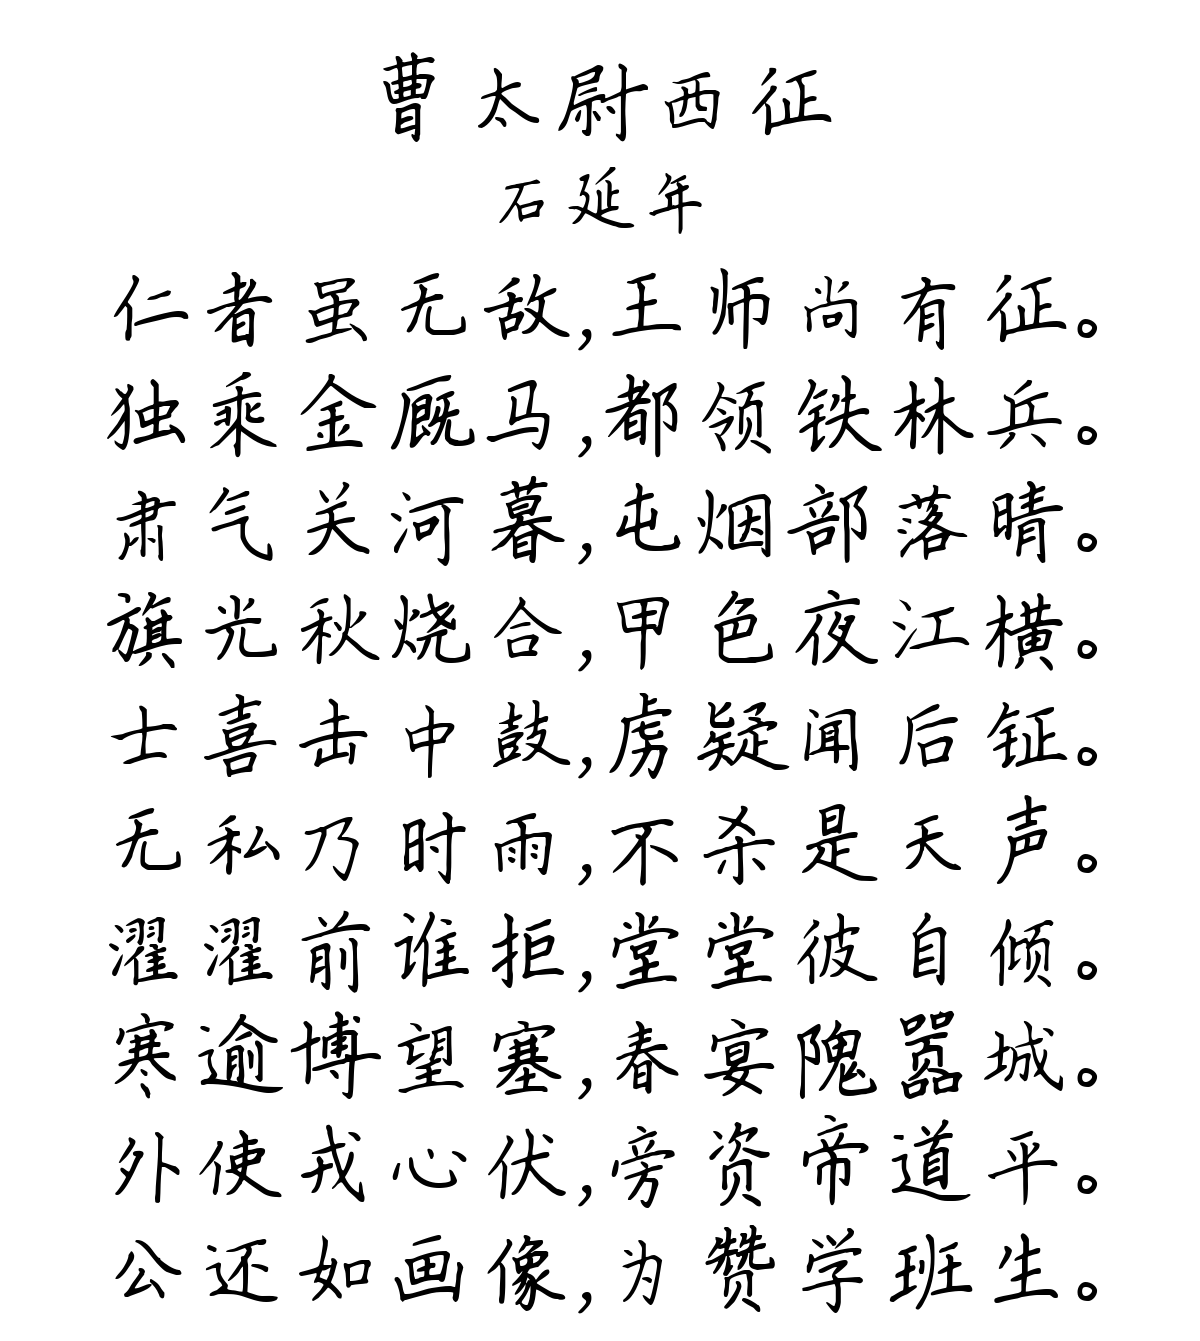 曹太尉西征
石延年
仁者虽无敌,王师尚有征。
独乘金厩马,都领铁林兵。
肃气关河暮,屯烟部落晴。
旗光秋烧合,甲色夜江横。
士喜击中鼓,虏疑闻后钲。
无私乃时雨,不杀是天声。
濯濯前谁拒,堂堂彼自倾。
寒逾博望塞,春宴隗嚣城。
外使戎心伏,旁资帝道平。
公还如画像,为赞学班生。